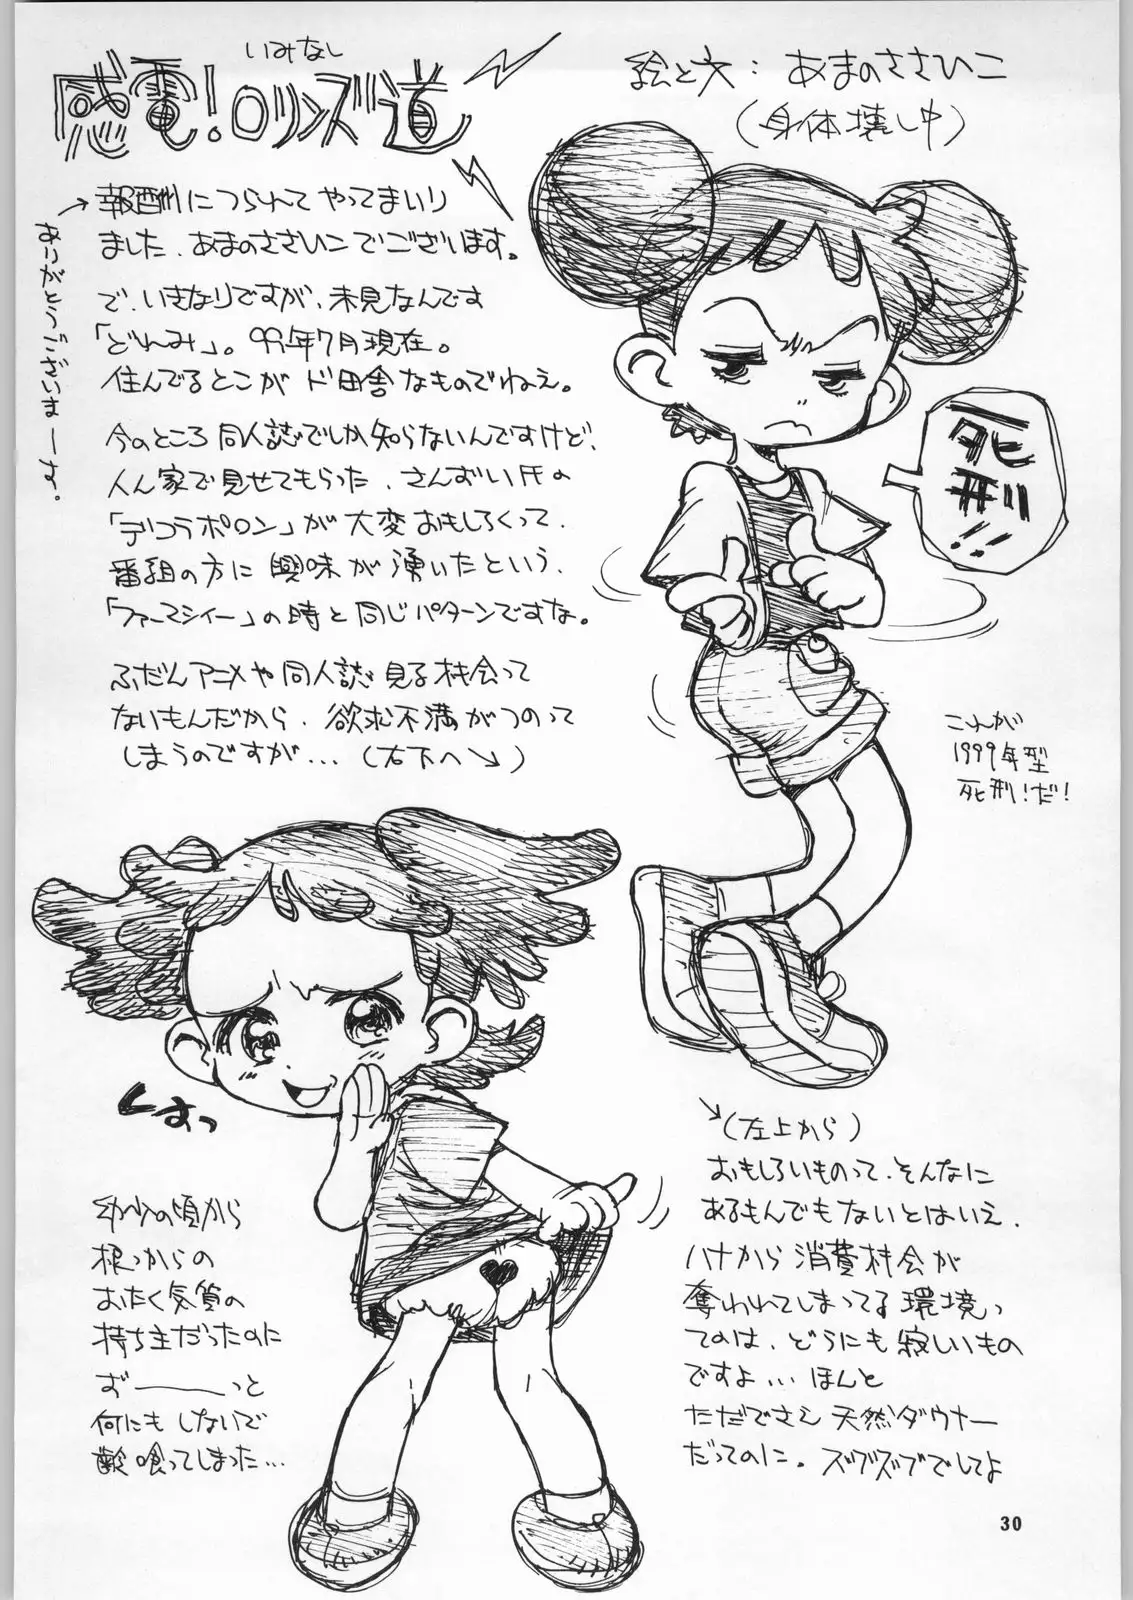 いみなし
感電!ロリンズ道
絵と文:あまのささひこ
(身体壊し中)
→報酬につられてやってまいり
ました、あまのささひこでございます。
ありがとうございまーす。
で、いきなりですが、未見なんです
「どれみ」。99年7月現在。
住んでるとこがド田舎なものでねえ。
今のところ同人誌でしか知らないんですけど、
人ん家で見せてもらった、さんずい氏の
「デコラポロン」が大変おもしろくって、
番組の方に興味が湧いたという、
「ファーマシィー」の時と同じパターンですな。
ふだんアニメや同人誌見る機会って
ないもんだから、欲求不満がつのって
しまうのですが…(右下へ↘)
死刑!!
これが
1999年型
死刑!だ!
くすっ
幼少の頃から
根っからの
おたく気質の
持ち主だったのに
ず――っと
何にもしないで
齢喰ってしまった…
↘(左上から)
おもしろいものって、そんなに
あるもんでもないとはいえ、
ハナから消費機会が
奪われてしまってる環境っ
てのは、どうにも寂しいもの
ですよ…ほんと
ただでさえ天然ダウナー
だってのに。ズブズブでしてよ
30